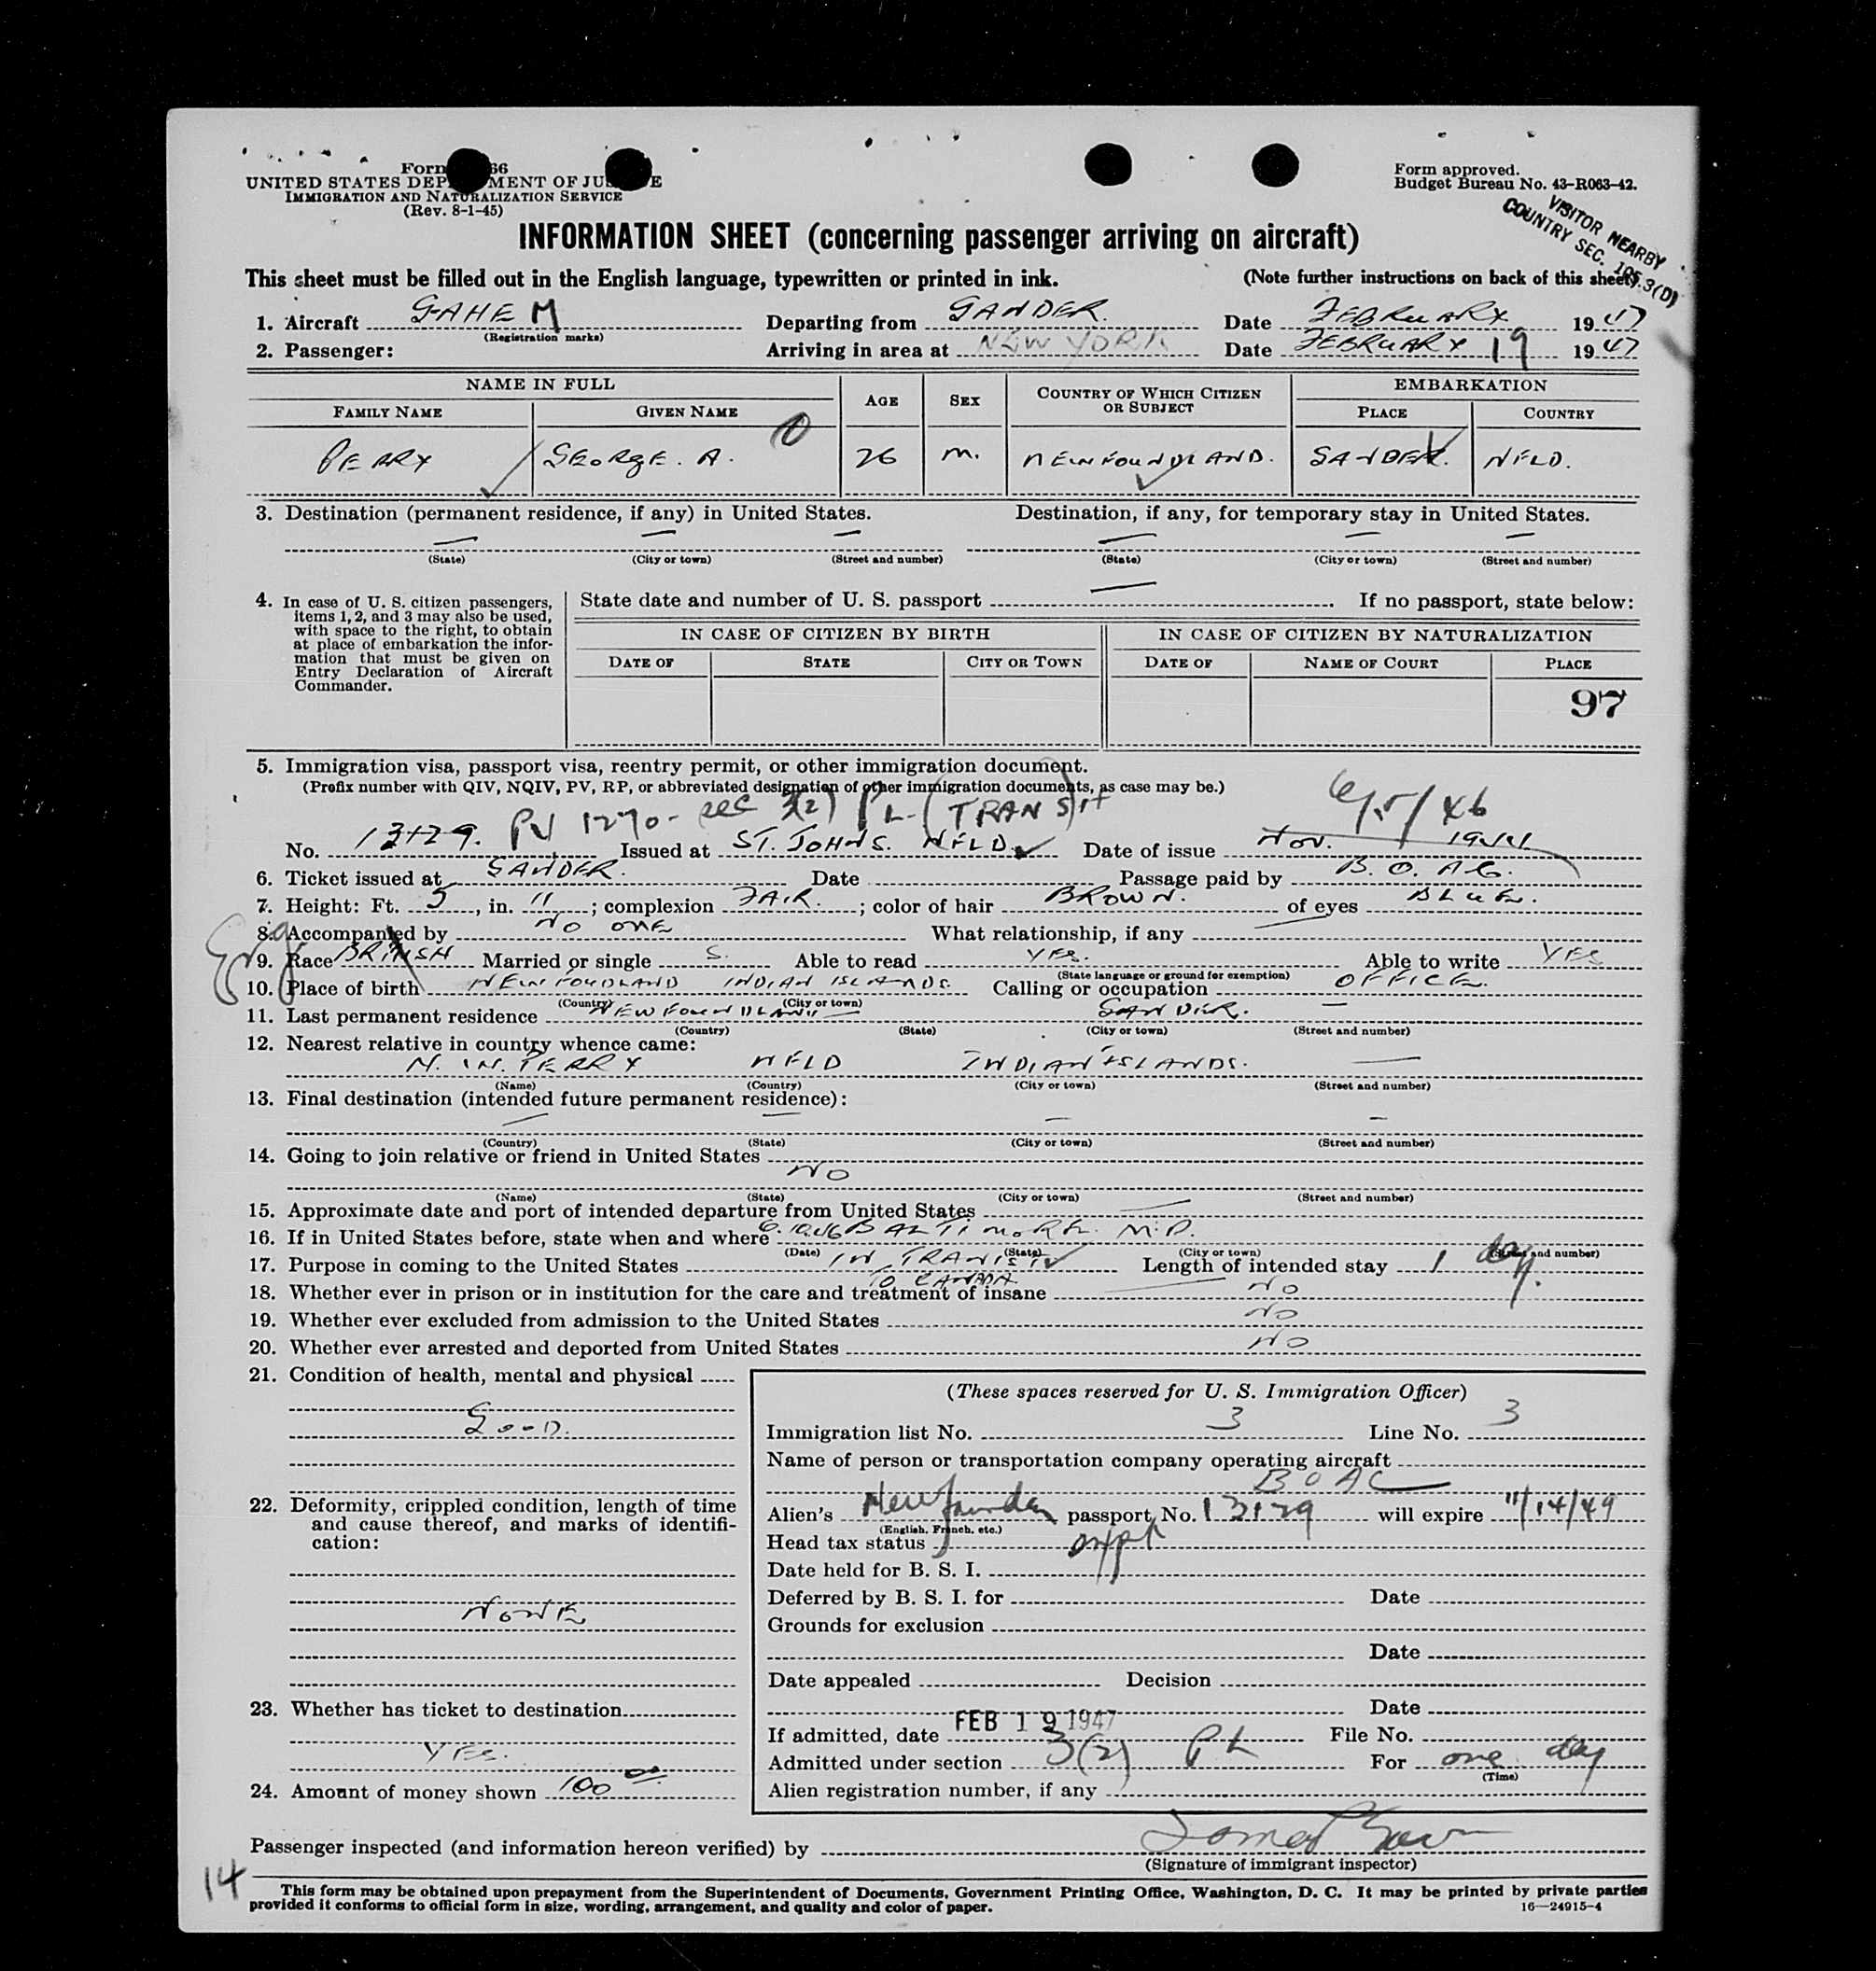 Form 66
UNITED STATES DEP MENT OF JUS E
IMMIGRATION AND NATURALIZATION SERVICE
(Rev. 8-1-45)
Form approved.
Budget Bureau No. 43-R063-42.
VISITOR NEARBY
COUNTRY SEC. 105.3(D)
INFORMATION SHEET (concerning passenger arriving on aircraft)
This sheet must be filled out in the English language, typewritten or printed in ink. (Note further instructions on back of this sheet)
1. Aircraft G-AHE M Departing from GANDER. Date FEBRUARY 1947
(Registration marks)
2. Passenger: Arriving in area at NEW YORK Date FEBRUARY 19 1947
NAME IN FULL AGE SEX COUNTRY OF WHICH CITIZEN OR SUBJECT EMBARKATION
FAMILY NAME GIVEN NAME PLACE COUNTRY
PERRY GEORGE. A. 26 M. NEWFOUNDLAND. GANDER. NFLD.
3. Destination (permanent residence, if any) in United States. Destination, if any, for temporary stay in United States.
— — — — — —
(State) (City or town) (Street and number) (State) (City or town) (Street and number)
4. In case of U. S. citizen passengers,
items 1, 2, and 3 may also be used,
with space to the right, to obtain
at place of embarkation the infor-
mation that must be given on
Entry Declaration of Aircraft
Commander.
State date and number of U. S. passport — . If no passport, state below:
IN CASE OF CITIZEN BY BIRTH IN CASE OF CITIZEN BY NATURALIZATION
DATE OF STATE CITY OR TOWN DATE OF NAME OF COURT PLACE
97
5. Immigration visa, passport visa, reentry permit, or other immigration document.
(Prefix number with QIV, NQIV, PV, RP, or abbreviated designation of other immigration documents, as case may be.)
PV 1270- sec 3(2) PL-(TRANSIT) 6/5/46
No. 13129. Issued at ST. JOHNS. NFLD Date of issue Nov. 1944
6. Ticket issued at GANDER. Date Passage paid by B. O. A C.
7. Height: Ft. 5, in. 11; complexion FAIR.; color of hair BROWN. of eyes BLUE.
8. Accompanied by NO ONE What relationship, if any —
Eng
9. Race BRITISH Married or single S. Able to read YES. Able to write YES
(State language or ground for exemption)
10. Place of birth NEWFOUDLAND INDIAN ISLANDS. Calling or occupation OFFICE.
(Country) (City or town)
11. Last permanent residence NEWFOUNDLAND — GANDER. —
(Country) (State) (City or town) (Street and number)
12. Nearest relative in country whence came:
N. W. PERRY NFLD INDIAN ISLANDS. —
(Name) (Country) (City or town) (Street and number)
13. Final destination (intended future permanent residence):
— — — —
(Country) (State) (City or town) (Street and number)
14. Going to join relative or friend in United States
NO
(Name) (State) (City or town) (Street and number)
15. Approximate date and port of intended departure from United States —
16. If in United States before, state when and where 6.10.46 BALTIMORE. M.D.
(Date) (State) (City or town) (Street and number)
17. Purpose in coming to the United States IN TRANSIT Length of intended stay 1 day.
TO CANADA
18. Whether ever in prison or in institution for the care and treatment of insane — NO
19. Whether ever excluded from admission to the United States NO
20. Whether ever arrested and deported from United States NO
21. Condition of health, mental and physical
GOOD.
22. Deformity, crippled condition, length of time
and cause thereof, and marks of identifi-
cation:
NONE
23. Whether has ticket to destination
YES.
24. Amount of money shown 100 00
(These spaces reserved for U. S. Immigration Officer)
Immigration list No. 3 Line No. 3
Name of person or transportation company operating aircraft
BOAC
Alien's passport No. 13129 will expire 11/14/49
(English, French, etc.)
Head tax status
Date held for B. S. I.
Deferred by B. S. I. for Date
Grounds for exclusion
Date
Date appealed Decision
Date
If admitted, date FEB 19 1947 File No.
Admitted under section 3(2) PL For one day
(Time)
Alien registration number, if any
Passenger inspected (and information hereon verified) by
(Signature of immigrant inspector)
14
This form may be obtained upon prepayment from the Superintendent of Documents, Government Printing Office, Washington, D. C. It may be printed by private parties
provided it conforms to official form in size, wording, arrangement, and quality and color of paper. 16—24915-4